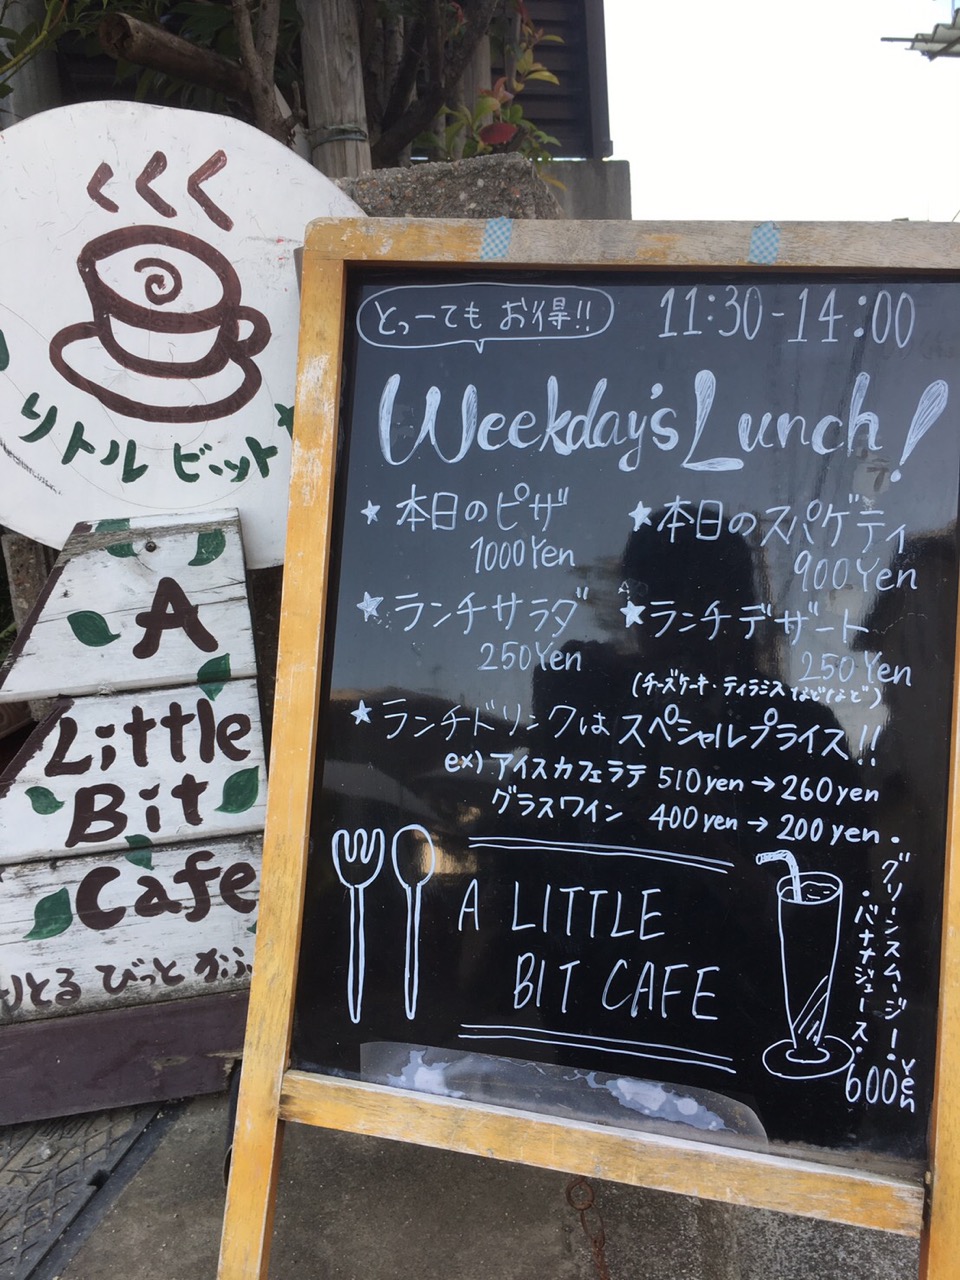 リトル ビット
A
Little
Bit
Cafe
りとる びっと かふ
とっーても お得!!
11:30-14:00
Weekday's Lunch!
★本日のピザ
1000Yen
★本日のスパゲティ
900Yen
★ランチサラダ
250Yen
★ランチデザート
250Yen
(チーズケーキ・ティラミスなどなど)
★ランチドリンクはスペシャルプライス!!
ex) アイスカフェラテ 510yen→260yen
グラスワイン 400yen→200yen.
A LITTLE
BIT CAFE
グリーンスムージー・
・バナナジュース・
600yen